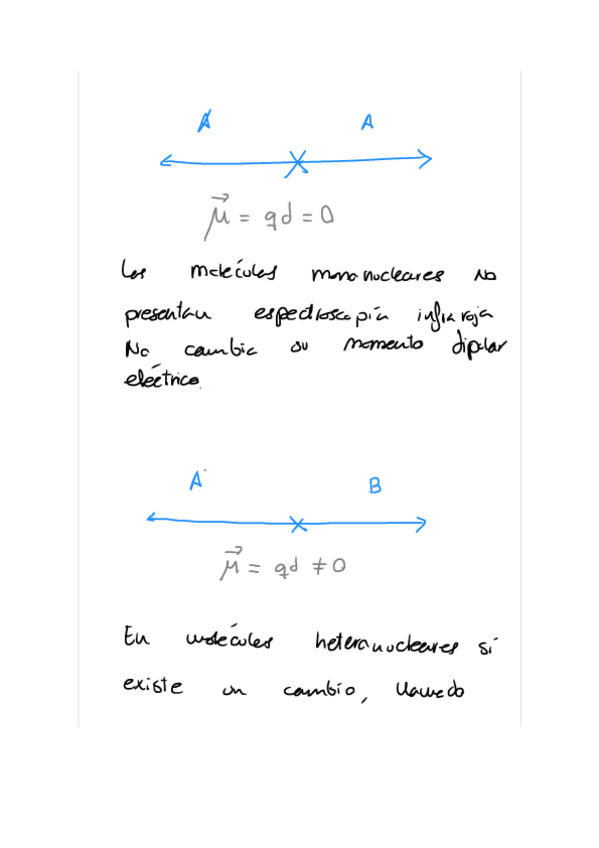 A A
μ⃗ = qd = 0
Las moléculas mononucleares no
presentan espectroscopía infraroja
No cambia su momento dipolar
eléctrico.
A B
μ⃗ = qd ≠ 0
En moléculas heteronucleares sí
existe un cambio, llamado